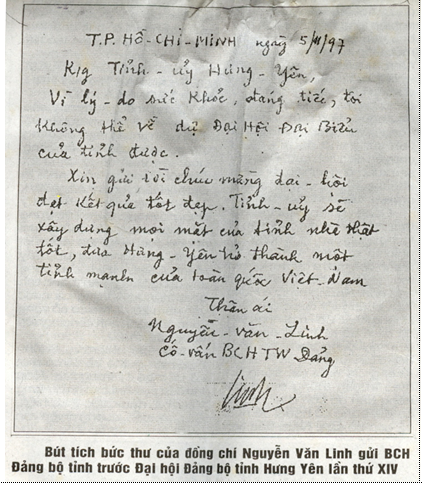 T.P. HỒ-CHÍ-MINH ngày 5/11/97
K/g Tỉnh-ủy Hưng-Yên,
Vì lý-do sức khỏe, đáng tiếc, tôi
không thể về dự Đại Hội Đại Biểu
của tỉnh được.
Xin gửi lời chúc mừng đại-hội
đạt kết quả tốt đẹp. Tỉnh-ủy sẽ
xây dựng mọi mặt của tỉnh nhà thật
tốt, đưa Hưng-Yên trở thành một
tỉnh mạnh của toàn quốc Việt-Nam
Thân ái
Nguyễn-Văn-Linh
Cố-vấn BCHTW Đảng
Linh
Bút tích bức thư của đồng chí Nguyễn Văn Linh gửi BCH
Đảng bộ tỉnh trước Đại hội Đảng bộ tỉnh Hưng Yên lần thứ XIV